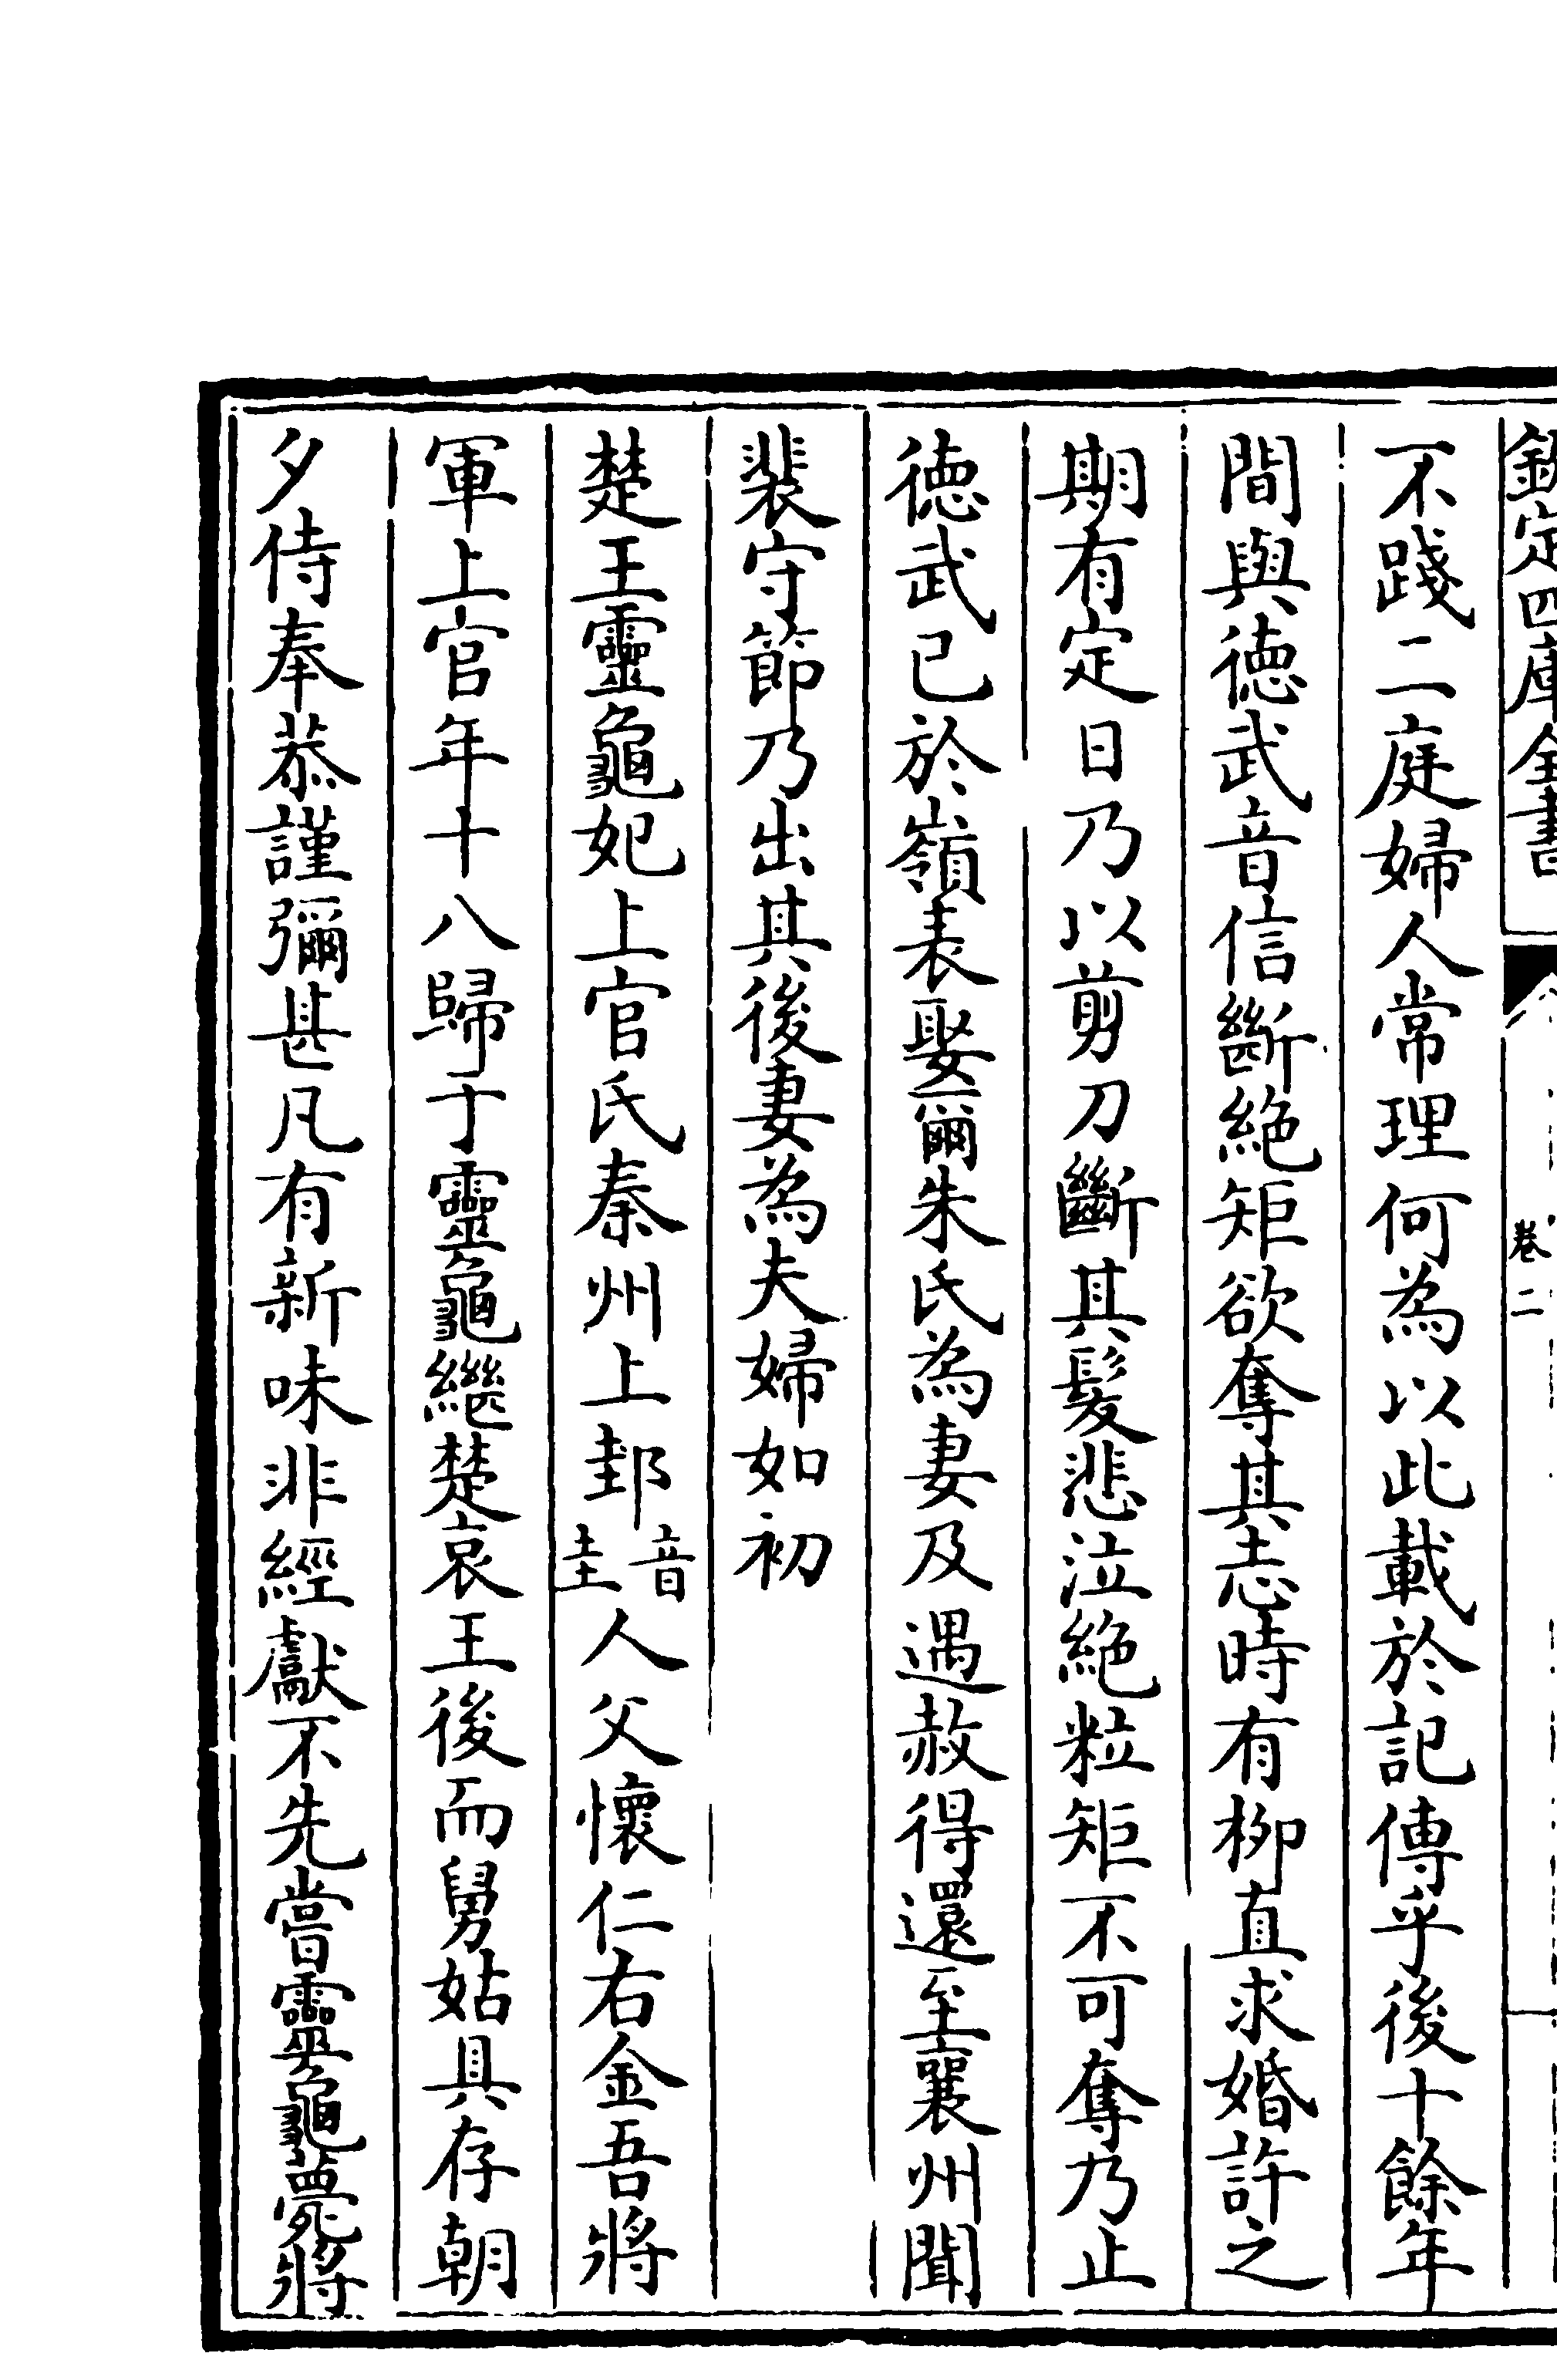 欽定四庫全書
卷二
不踐二庭婦人常理何為以此載於記傳乎後十餘年
間與德武音信斷絶矩欲奪其志時有柳直求婚許之
期有定日乃以剪刀斷其髮悲泣絶粒矩不可奪乃止
德武已於嶺表娶爾朱氏為妻及遇赦得還至襄州聞
裴守節乃出其後妻為夫婦如初
楚王靈龜妃上官氏秦州上邽音圭人父懷仁右金吾將
軍上官年十八歸于靈龜繼楚哀王後而舅姑具存朝
夕侍奉恭謹彌甚凡有新味非經獻不先嘗靈龜薨將